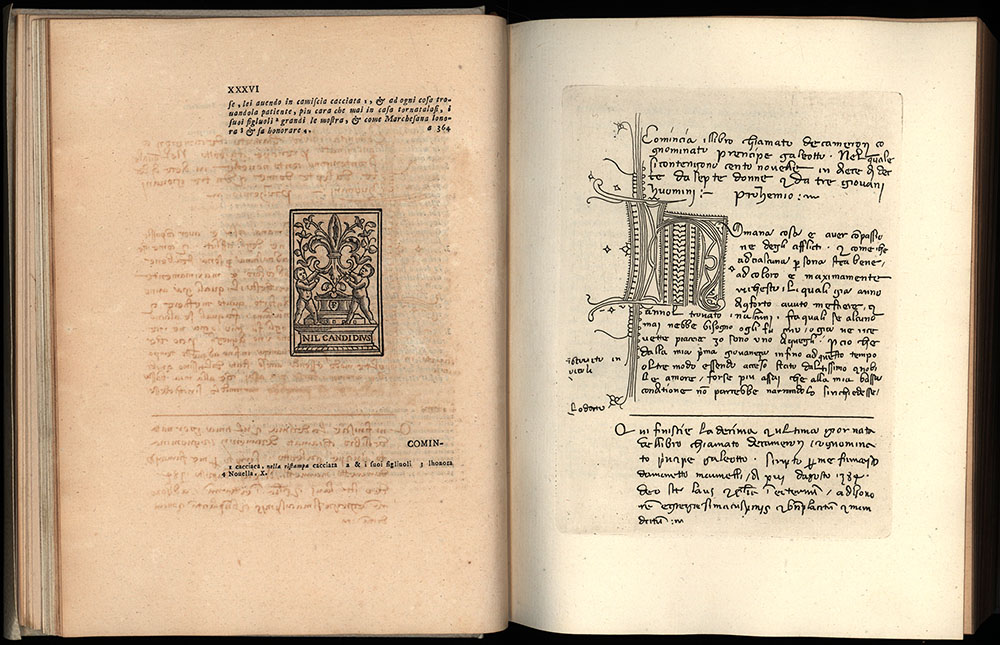 XXXVI
se, lei auendo in camiscia cacciata 1, & ad ogni cosa tro-
uandola patiente, piu cara che mai in casa tornatalasi, i
suoi figluoli 2 grandi le mostra, & come Marchesana lono-
ra 3 & fa honorare 4. a 364
NIL CANDIDIVS
COMIN-
1 cacciata, nella ristampa cacciata 2 & i suoi figliuoli 3 lhonora
4 Nouella. X.
Comincia illibro chiamato decameron co
gnominato prencipe galeotto. Nel quale
si contengono cento novelle in diece di dec
te da septe donne & da tre giovani
huomini :~
Prohemio :~
Umana cosa e aver copassio
ne degli afflicti. & come che
ad ciascuna p sona stea bene
ad coloro e maximamente
richesto. Li quali gia anno
di conforto avuto mestiere, &
anno trovato in alcuni. fra quali se alcuno
mai nebbe bisogno o gli fu caro, o gia ne rice
vette piacere io sono uno di quegli. p cio che
dalla mia prima giovaneza infino ad questo tempo
oltre modo essendo acceso stato daltissimo & nobi
le amore, forse piu assai che alla mia bassa
conditione no parrebbe narrandolo si richiedesse
Lodato
Qui finiscie la decima & ultima giornata
del libro chiamato decameron & cognomina
to prencipe galeotto. scripto p me
damaretto mannelli, di xiii dagosto 1384